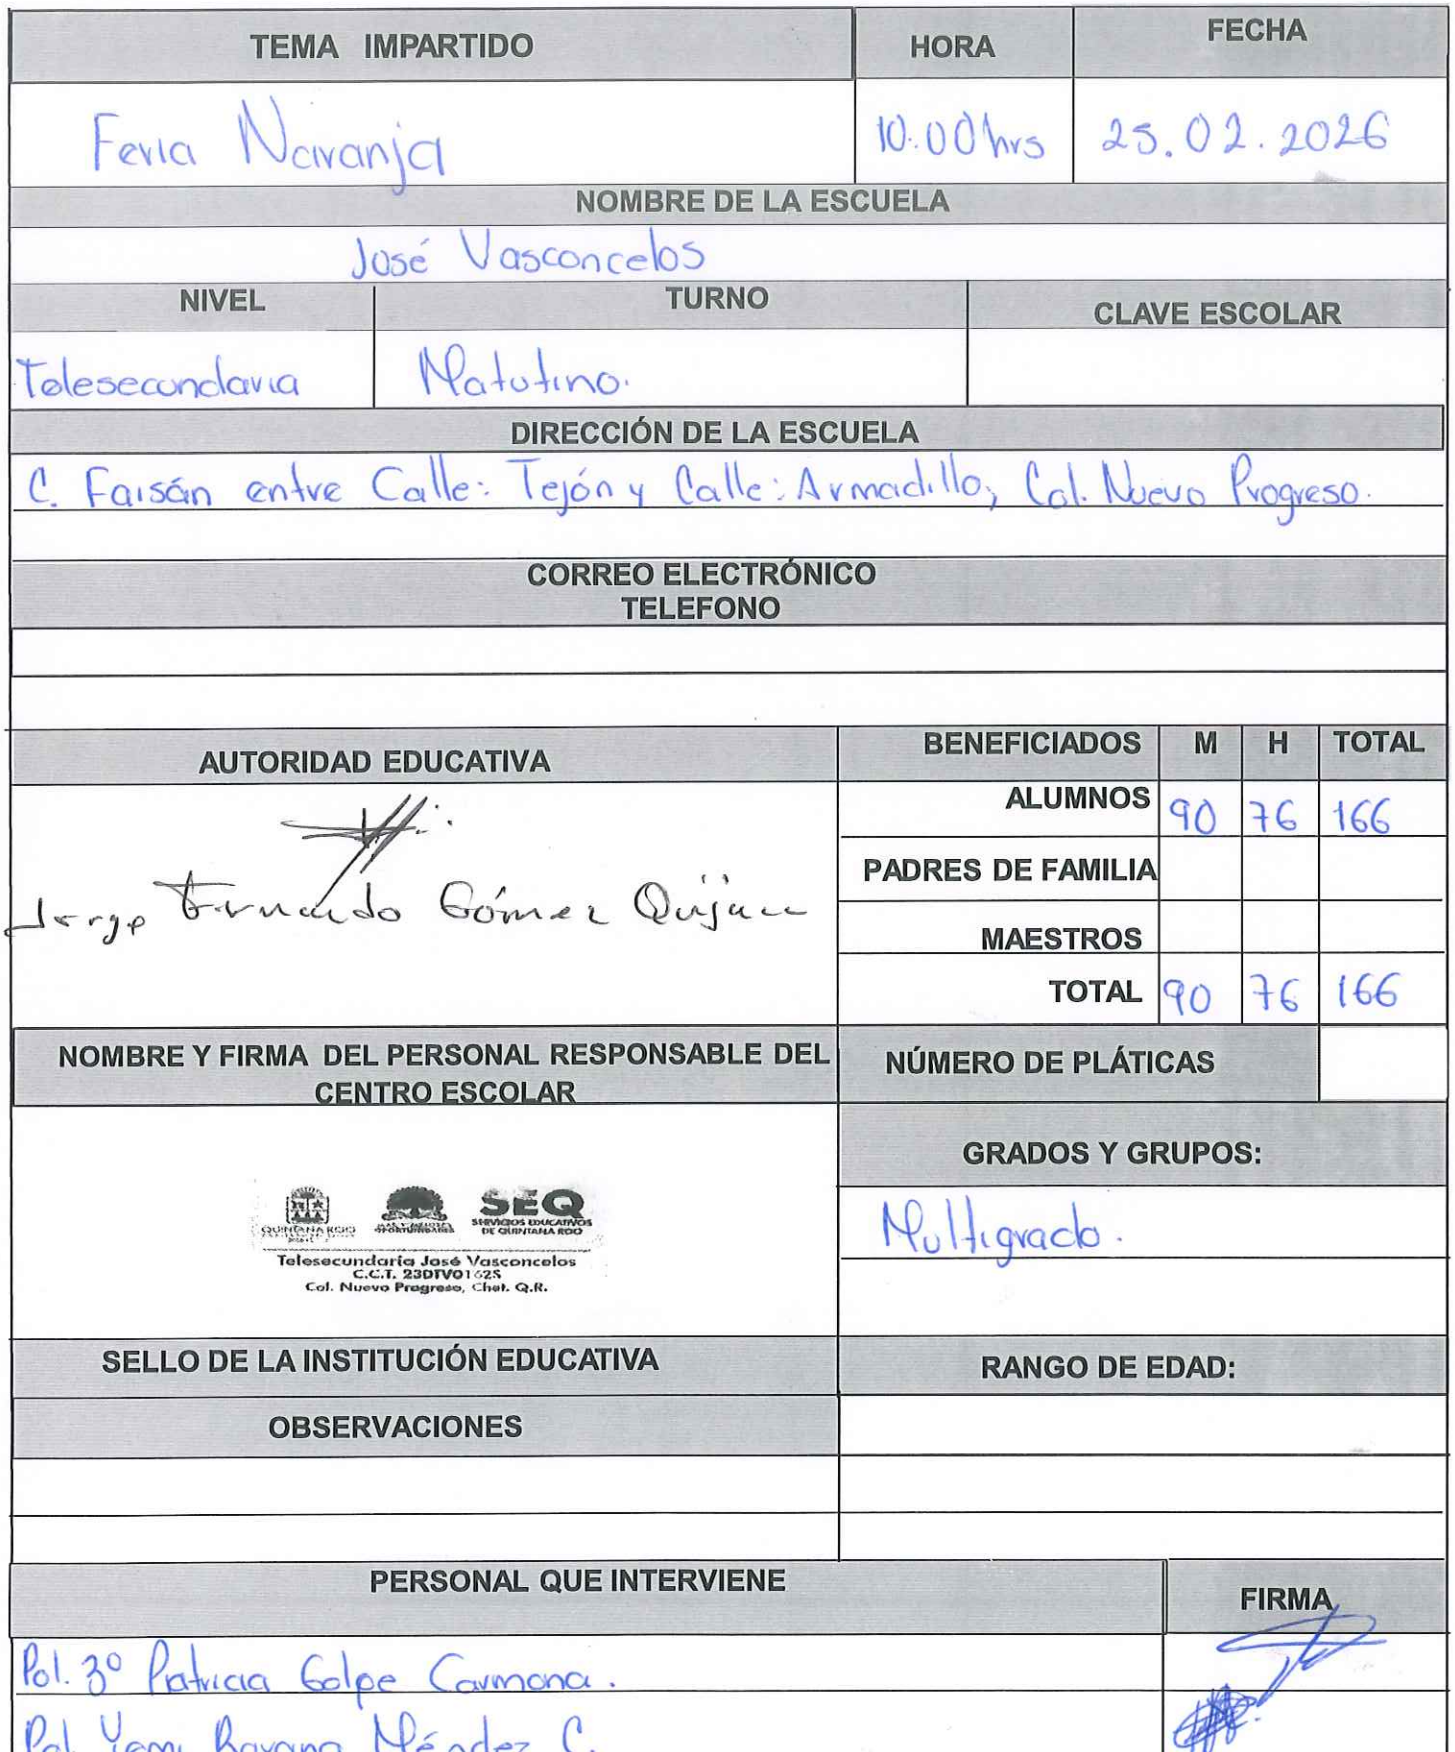 TEMA IMPARTIDO HORA FECHA
Feria Naranja 10:00 hrs 25.02.2026
NOMBRE DE LA ESCUELA
José Vasconcelos
NIVEL TURNO CLAVE ESCOLAR
Telesecundaria Matutino.
DIRECCIÓN DE LA ESCUELA
C. Faisán entre Calle: Tejón y Calle: Armadillo, Col. Nuevo Progreso.
CORREO ELECTRÓNICO
TELEFONO
AUTORIDAD EDUCATIVA BENEFICIADOS M H TOTAL
ALUMNOS 90 76 166
PADRES DE FAMILIA
Jorge Fernando Gómez
MAESTROS
TOTAL 90 76 166
NOMBRE Y FIRMA DEL PERSONAL RESPONSABLE DEL
CENTRO ESCOLAR
NÚMERO DE PLÁTICAS
GRADOS Y GRUPOS:
Multigrado.
SEQ
SERVICIOS EDUCATIVOS
DE QUINTANA ROO
QUINTANA ROO
OPORTUNIDADES
Telesecundaria José Vasconcelos
C.C.T. 23DTV0162S
Col. Nuevo Progreso, Chet. Q.R.
SELLO DE LA INSTITUCIÓN EDUCATIVA RANGO DE EDAD:
OBSERVACIONES
PERSONAL QUE INTERVIENE FIRMA
Pol. 3º Patricia Golpe Carmona.
Pol. Méndez C.